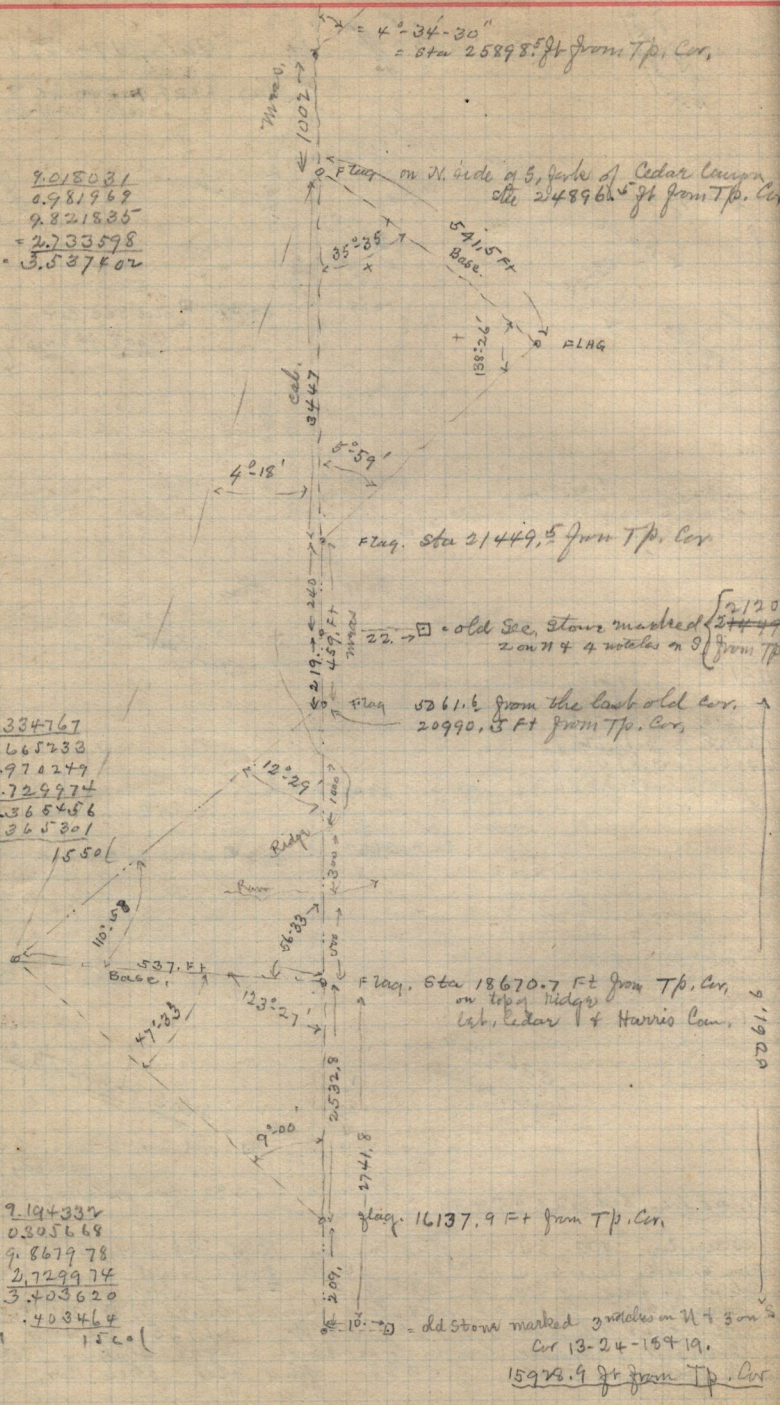 = 4°-34'-30"
= Sta 25898.5 ft from Tp. Cor.
Meas.
1002
Flag on N. side of S. fork of Cedar Canyon
Sta 24896.5 ft from Tp. Cor
9.018031
0.981969
9.821835
= 2.733598
3.537402
35°-35
541.5 Ft
Base.
138°-26'
FLAG
Cal.
3447
5°-59'
4°-18'
Flag. Sta 21449.5 from Tp. Cor
240
459. Ft
Meas
219.
22. = old Sec. Stone marked
2 on N & 4 notches on S
2120
from Tp
Flag 5061.6 from the last old cor.
20990.5 Ft from Tp. Cor.
334767
665233
970249
.729974
.365456
365301
1550
12°-29'
1000
Ridge
300
110°-58
56-33
500
537. Ft
Base.
Flag. Sta 18670.7 Ft from Tp. Cor.
on top of ridge
bet. Cedar & Harris Can.
123°-27'
47°-33
5061.6
2532.8
9°-00'
2741.8
Flag. 16137.9 Ft from Tp. Cor.
9.194332
0.805668
9.867978
2.729974
3.403620
.403464
209.
10. = old Stone marked 3 notches on N & 3 on S
Cor 13-24-18&19.
15928.9 ft from Tp. Cor